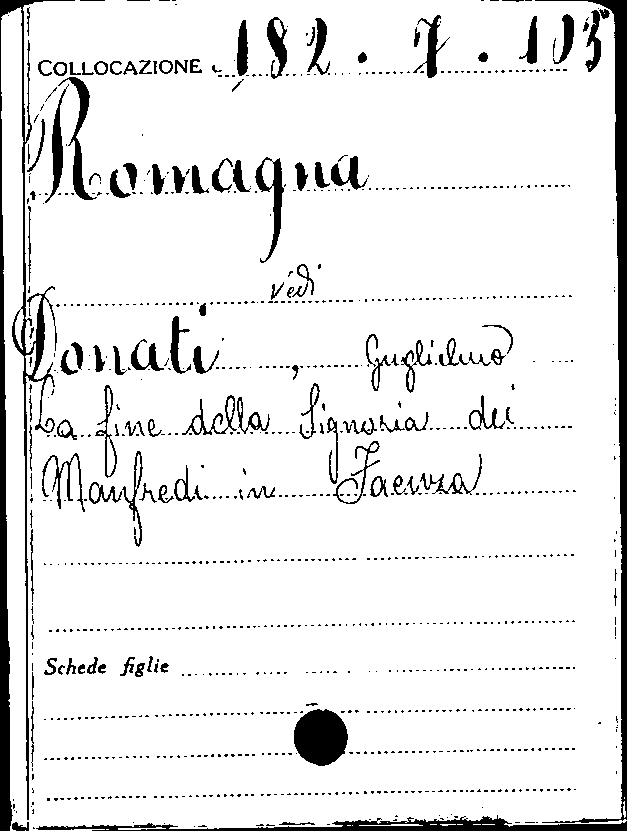 COLLOCAZIONE 182.7.103
Romagna
vedi
Donati, Guglielmo
La fine della Signoria dei
Manfredi in Faenza
Schede figlie